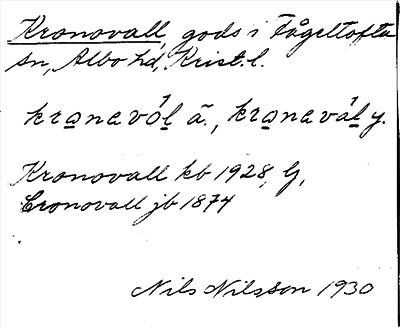 Kronovall, gods i Fågeltofta
sn, Albo hd, Krist. l.
kronavól ä., kronavál y.
Kronovall kb 1928, G,
Cronovall jb 1874
Nils Nilsson 1930